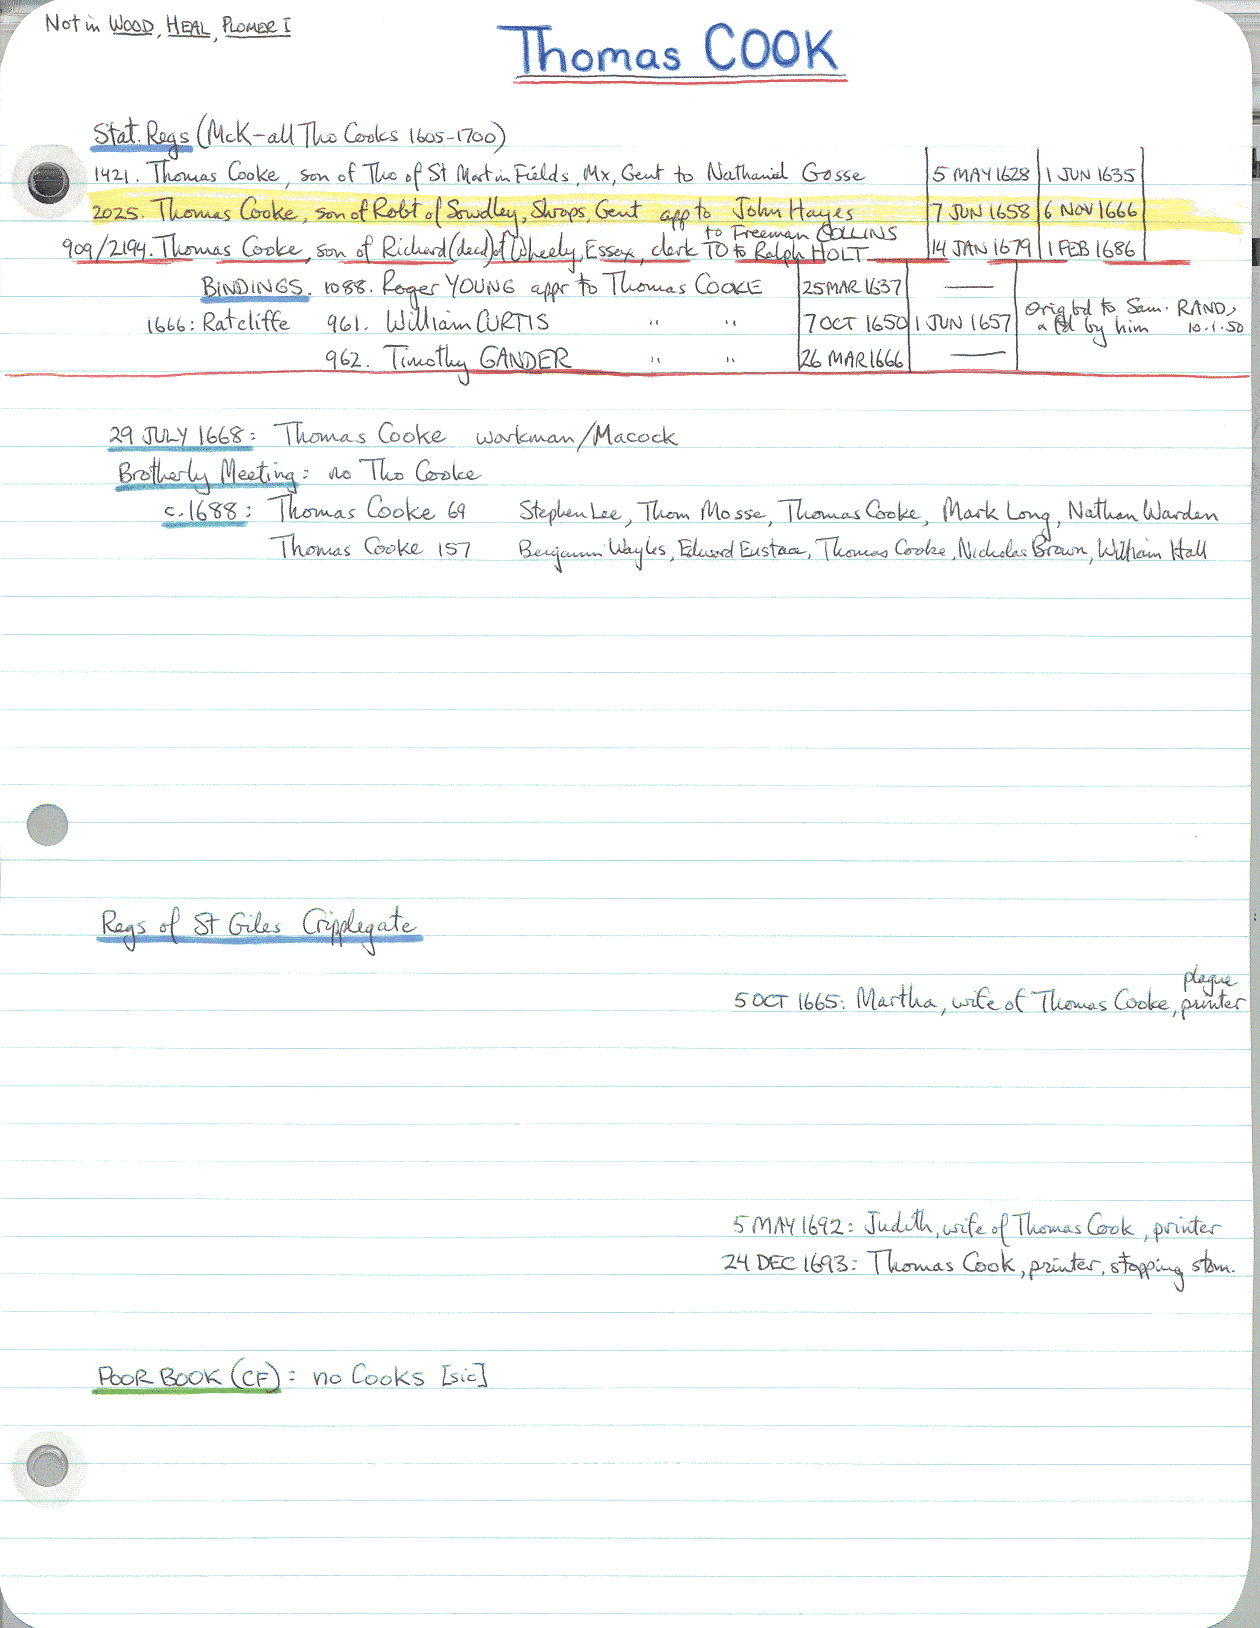 Not in WOOD, HEAL, PLOMER I
Thomas COOK
Stat. Regs (McK-all Tho Cooks 1605-1700)
1421. Thomas Cooke, son of Tho of St Martin Fields, Mx, Gent to Nathaniel Gosse 5 MAY 1628 1 JUN 1635
2025. Thomas Cooke, son of Robt of Sowdley, Shrops, Gent app to John Hayes 7 JUN 1658 6 NOV 1666
to Freeman COLLINS
909/2194. Thomas Cooke, son of Richard (decd) of Wheely, Essex, clerk TO to Ralph HOLT 14 JAN 1679 1 FEB 1686
BINDINGS. 1088. Roger YOUNG appr to Thomas COOKE 25 MAR 1637 —
1666: Ratcliffe 961. William CURTIS " " 7 OCT 1650 1 JUN 1657 Orig bd to Sam. RAND,
by him 10.1.50
962. Timothy GANDER " " 26 MAR 1666 —
29 JULY 1668: Thomas Cooke workman/Macock
Brotherly Meeting: no Tho Cooke
c.1688: Thomas Cooke 69 Stephen Lee, Thom Mosse, Thomas Cooke, Mark Long, Nathan Warden
Thomas Cooke 157 Benjamin Wayles, Edward Eustace, Thomas Cooke, Nicholas Brown, William Hall
Regs of St Giles Cripplegate
plague
5 OCT 1665: Martha, wife of Thomas Cooke, printer
5 MAY 1692: Judith, wife of Thomas Cook, printer
24 DEC 1693: Thomas Cook, printer, stopping stom.
POOR BOOK (CF): no Cooks [sic]